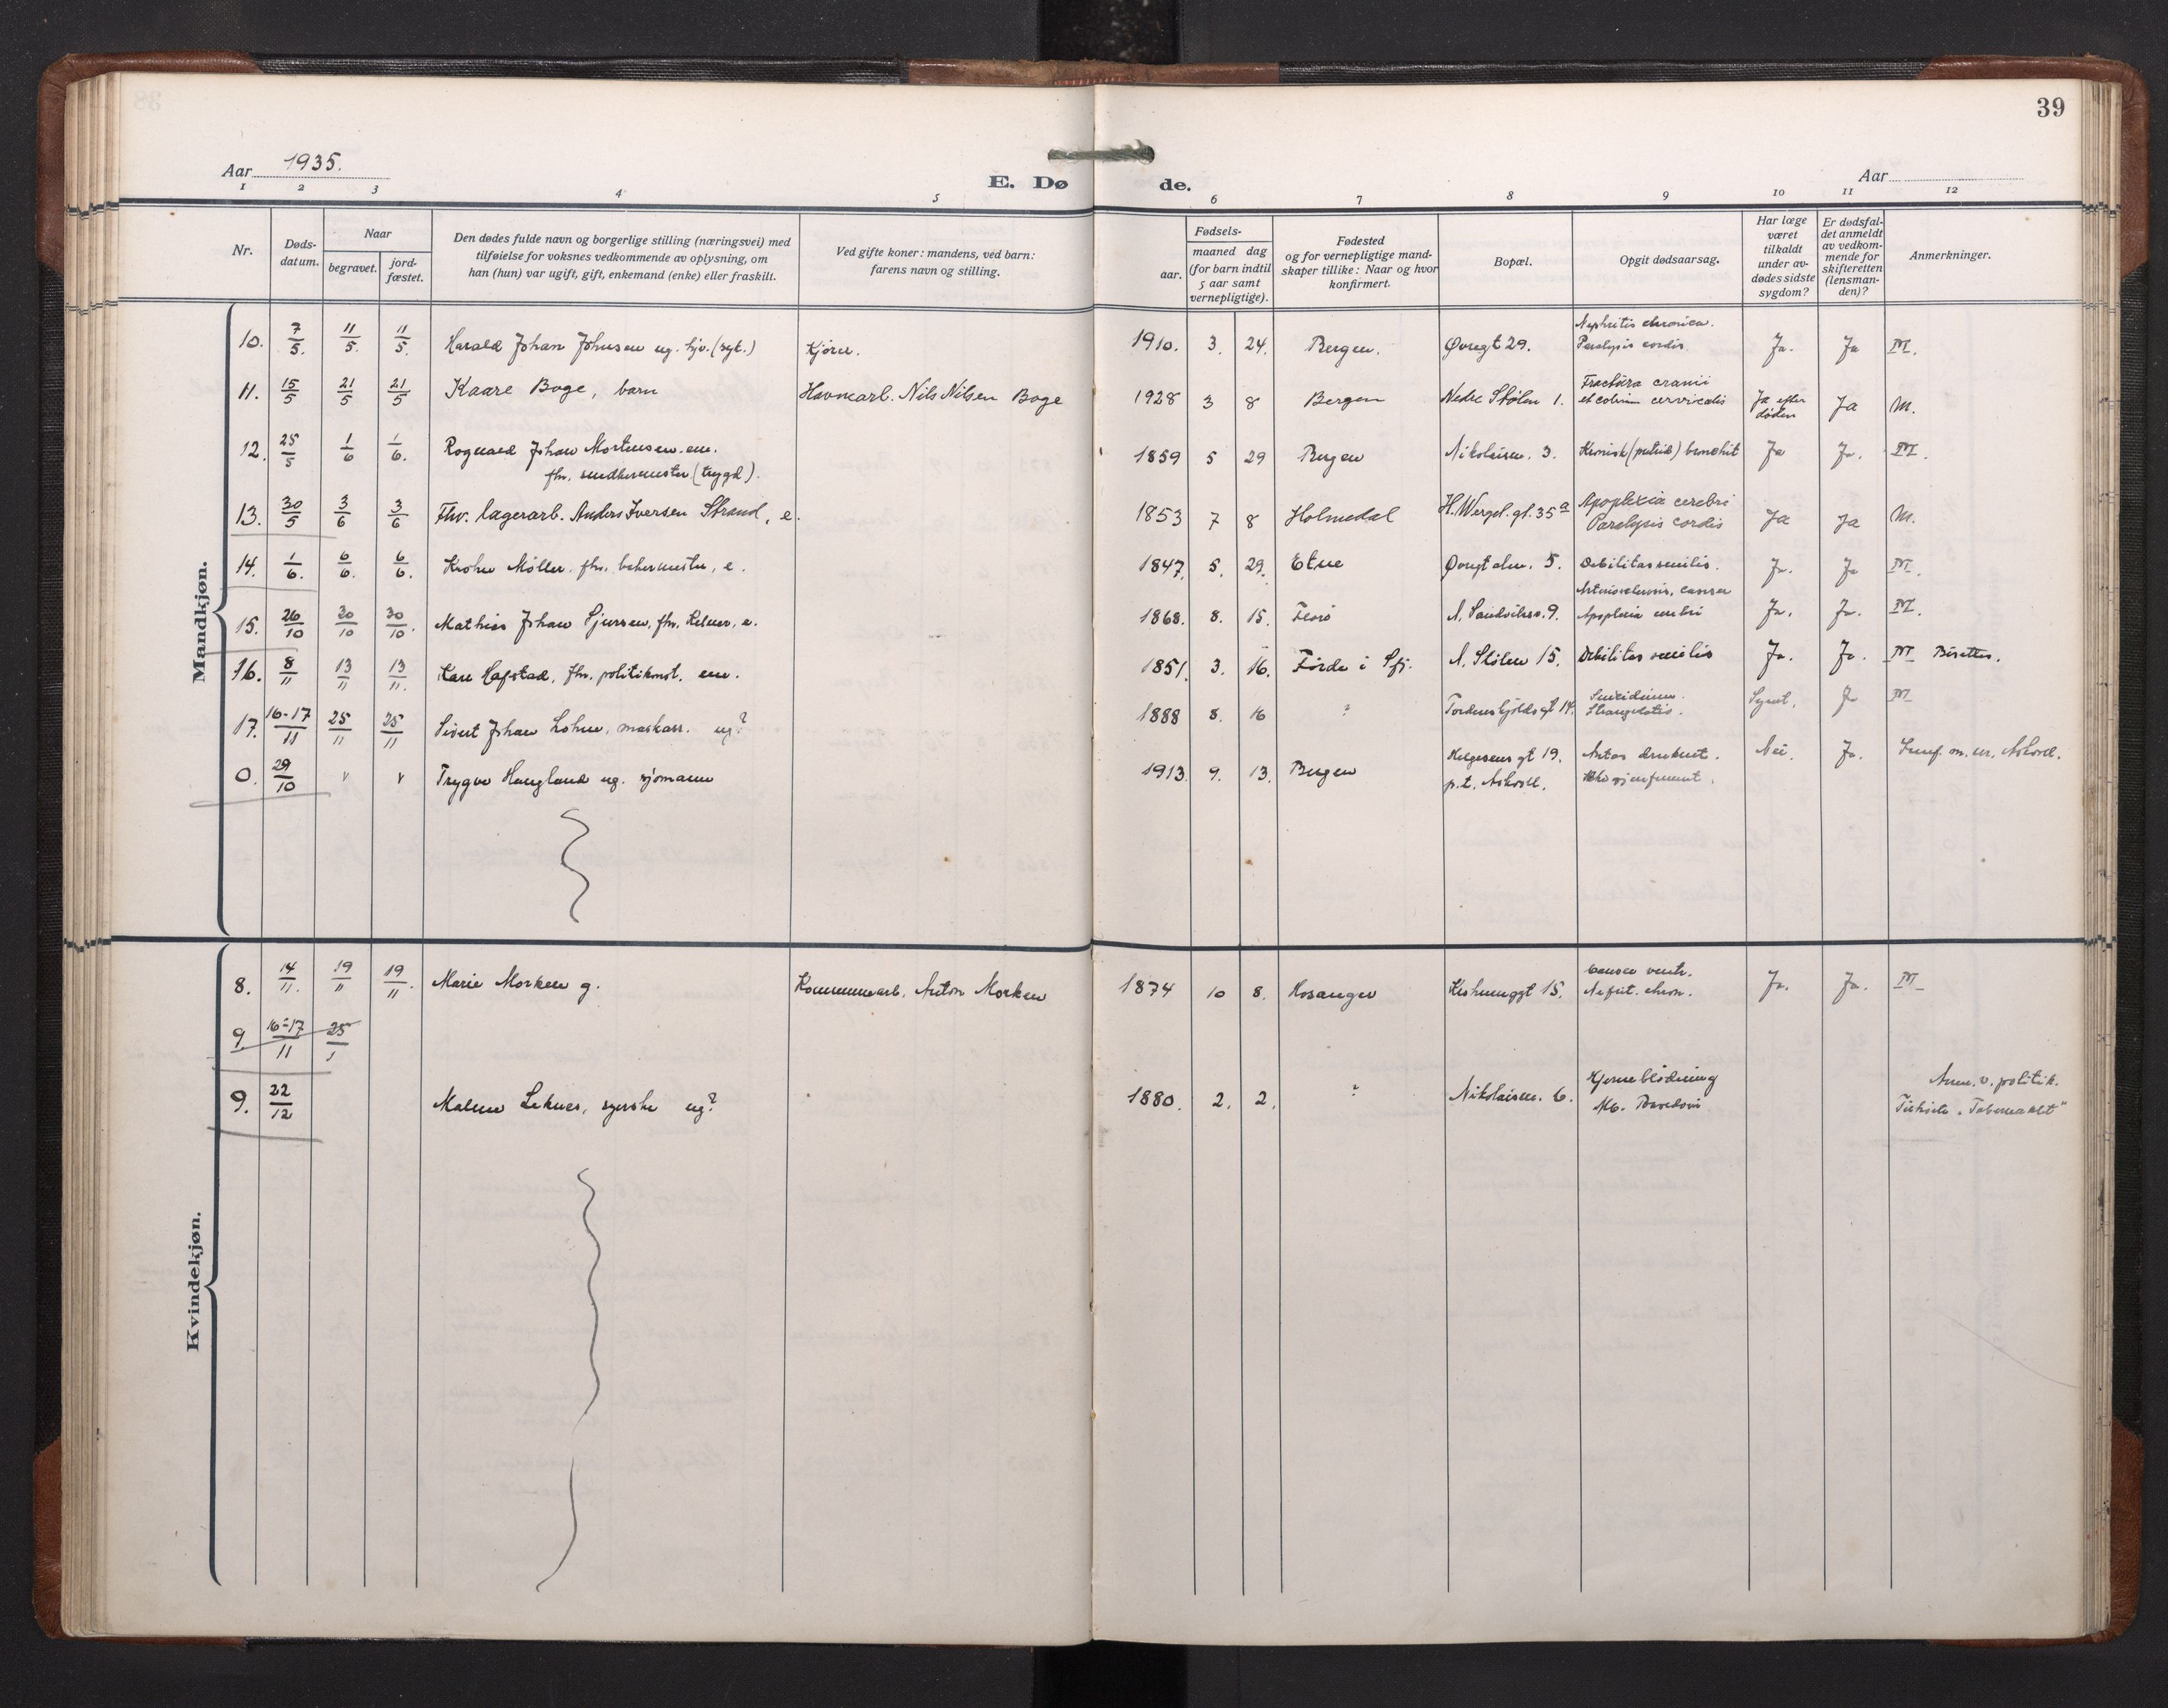 39
Aar 1935.
E. Dø de.
Aar
1 2 3 4 5 6 7 8 9 10 11 12
Nr.
Døds-
datum.
Naar
begravet.
jord-
fæstet.
Den dødes fulde navn og borgerlige stilling (næringsvei) med
tilføielse for voksnes vedkommende av oplysning, om
han (hun) var ugift, gift, enkemand (enke) eller fraskilt.
Ved gifte koner: mandens, ved barn:
farens navn og stilling.
Fødsels-
aar.
maaned dag
(for barn indtil
5 aar samt
vernepligtige).
Fødested
og for vernepligtige mand-
skaper tillike: Naar og hvor
konfirmert.
Bopæl.
Opgit dødsaarsag.
Har læge
været
tilkaldt
under av-
dødes sidste
sygdom?
Er dødsfal-
det anmeldt
av vedkom-
mende for
skifteretten
(lensman-
den)?
Anmerkninger.
Mandkjøn.
Nephritis chronica.
10. 7/5. 11/5. 11/5. Harald Johan Johnsen ug. hjv. (syk.) Kjører. 1910. 3. 24. Bergen. Øvregt 29. Paralysis cordis. Ja. Ja M.
Fractura cranii
11. 15/5 21/5 21/5 Kaare Boge, barn Havnearb. Nils Nilsen Boge 1928 3 8 Bergen Nedre Stølen 1. et column cervicalis Ja efter Ja M.
døden
12. 25/5 1/6 1/6. Rognald Johan Mortensen. em. 1859 5 29 Bergen Nikolaism. 3. Kronisk (putrid) bronchit Ja Ja. M.
fhv. snedkermester (trygd).
Apoplexia cerebri
13. 30/5 3/6 3/6 Fhv. lagerarb. Anders Iversen Strand, e. 1853 7 8 Holmedal H. Wergel. gt. 35a Paralysis cordis Ja Ja M.
14. 1/6. 6/6. 6/6. Krohn Møller. fhv. bekermester, e. 1847. 5. 29. Etne Øvregt alm. 5. Debilitas senilis. Ja. Ja M.
Arteriosclerosis, cancer
15. 26/10 30/10 30/10. Mathias Johan Sjursen, fhv. Kelner, e. 1868. 8. 15. Florø N. Sandviksv. 9. Apoplexia cerebri Ja. Ja. M.
16. 8/11 13/11 13/11. Kare Hafstad, fhv. politikonst. em. 1851. 3. 16. Førde i Sfj. N. Stølen 15. Debilitas senilis Ja. Ja. M Bisettes.
Suicidium.
17. 16-17/11 25/11 25/11 Sivert Johan Lohne, maskarr. ug? 1888 8. 16 ? Tordenskjolds gt 14. Strangulatio. Synt. Ja M
Helgesens gt 19. Antas druknet. Nei Ja. Innf. m. nr. Askvoll.
0. 29/10 v v Trygve Haugland ug. sjømann 1913. 9. 13. Bergen p.t. Askvoll. Ikke gjenfunnet.
Kvindekjøn.
Cancer ventr.
8. 14/11. 19/11 19/11. Marie Morken g. Kommunearb. Anton Morken 1874 10 8. Hosanger Nefrit. chron. Ja. Ja. M
9. 16-17/11 25/1
Hjerneblødning Anm. v. politik.
9. 22/12 Malene Leknes, syerske ug? 1880. 2. 2. ? Nikolaism. 6. Mb. Basedowi Tilhørte "Tabernaklet"